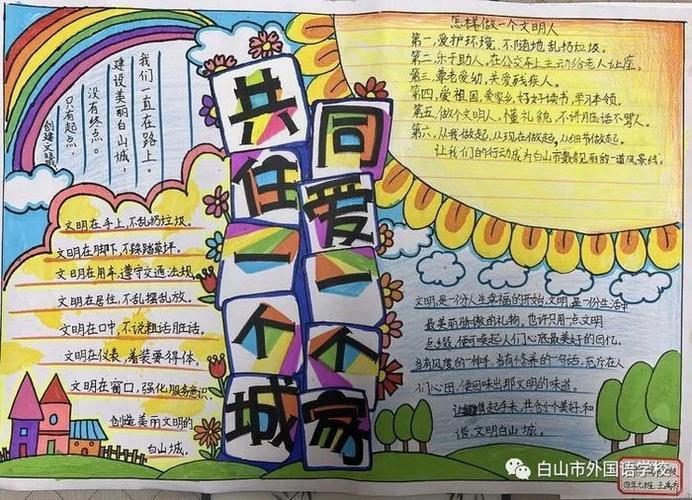 创建文
只有起点，
没有终点。
建设美丽白山城，
我们一直在路上。
文明在手上，不乱扔垃圾。
文明在脚下，不踩踏草坪。
文明在用车，遵守交通法规。
文明在居住，不乱摆乱放。
文明在口中，不说粗话脏话。
文明在仪表，着装要得体。
文明在窗口，强化服务意识，
创造美丽文明的
白山城。
共住一个城
同爱一个家
怎样做一个文明人
第一，爱护环境，不随地乱扔垃圾。
第二，乐于助人，在公交车上主动给老人让座。
第三，尊老爱幼，关爱残疾人。
第四，爱祖国，爱家乡，好好读书，学习本领。
第五，做个文明人，懂礼貌，不讲脏话不骂人。
第六，从我做起，从现在做起，从细节做起。
让我们的行动成为白山市最靓丽的一道风景线。
文明，是一份人生幸福的开始，文明，是一份生活中
最美丽骄傲的礼物，也许只用一点文明
点缀，便可唤起人们心底最美好的回忆。
当有风度的一伸手，当有修养的一句话，充斥在人
们心田，便回味出那文明的味道。
让携起手来，共创个美好和
谐文明白山城。
四年七班 王
白山市外国语学校